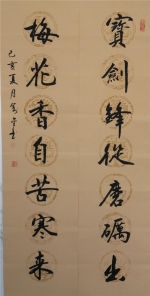 寶劍鋒從磨礪出
梅花香自苦寒来
己亥夏月